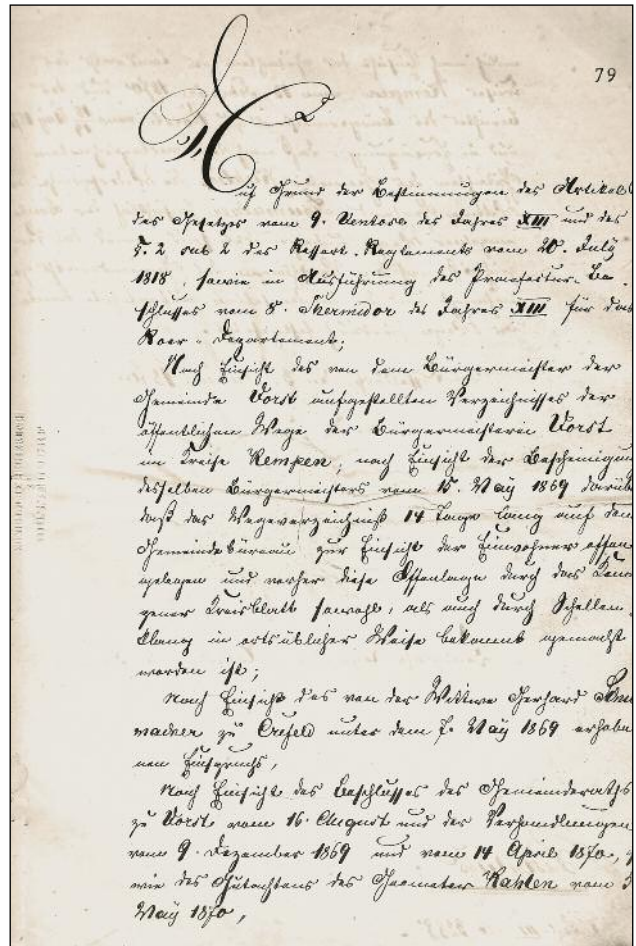 79
Auf Grund der Bestimmungen des Artikel
des Gesetzes vom 9. Ventose des Jahres XIII und des
§. 2 sub 2 des Ressort-Reglements vom 20. July
1818, sowie in Ausführung des Praefectur-Be-
schlusses vom 8. Thermidor des Jahres XIII für das
Roer-Departement;
Nach Einsicht des von dem Bürgermeister der
Gemeinde Vorst aufgestellten Verzeichnisses der
öffentlichen Wege der Bürgermeisterei Vorst
im Kreise Kempen; nach Einsicht der Bescheinigun
desselben Bürgermeisters vom 15. May 1869 darüb
daß das Wegeverzeichniß 14 Tage lang auf dem
Gemeindebüreau zur Einsicht der Einwohner offen
gelegen und vorher diese Offenlage durch das Kem
pener Kreisblatt sowohl, als auch durch Schellen-
klang in ortsüblicher Weise bekannt gemacht
worden ist;
Nach Einsicht des von der Wittwe Gerhard
zu Crefeld unter dem 7. May 1869 erhobe
nen Einspruchs,
Nach Einsicht des Beschlusses des Gemeinderaths
zu Vorst vom 16. August und der Verhandlungen
vom 9. Dezember 1869 und vom 14 April 1870,
wie des Gutachtens des Geometer Kahlen vom 5
May 1870,